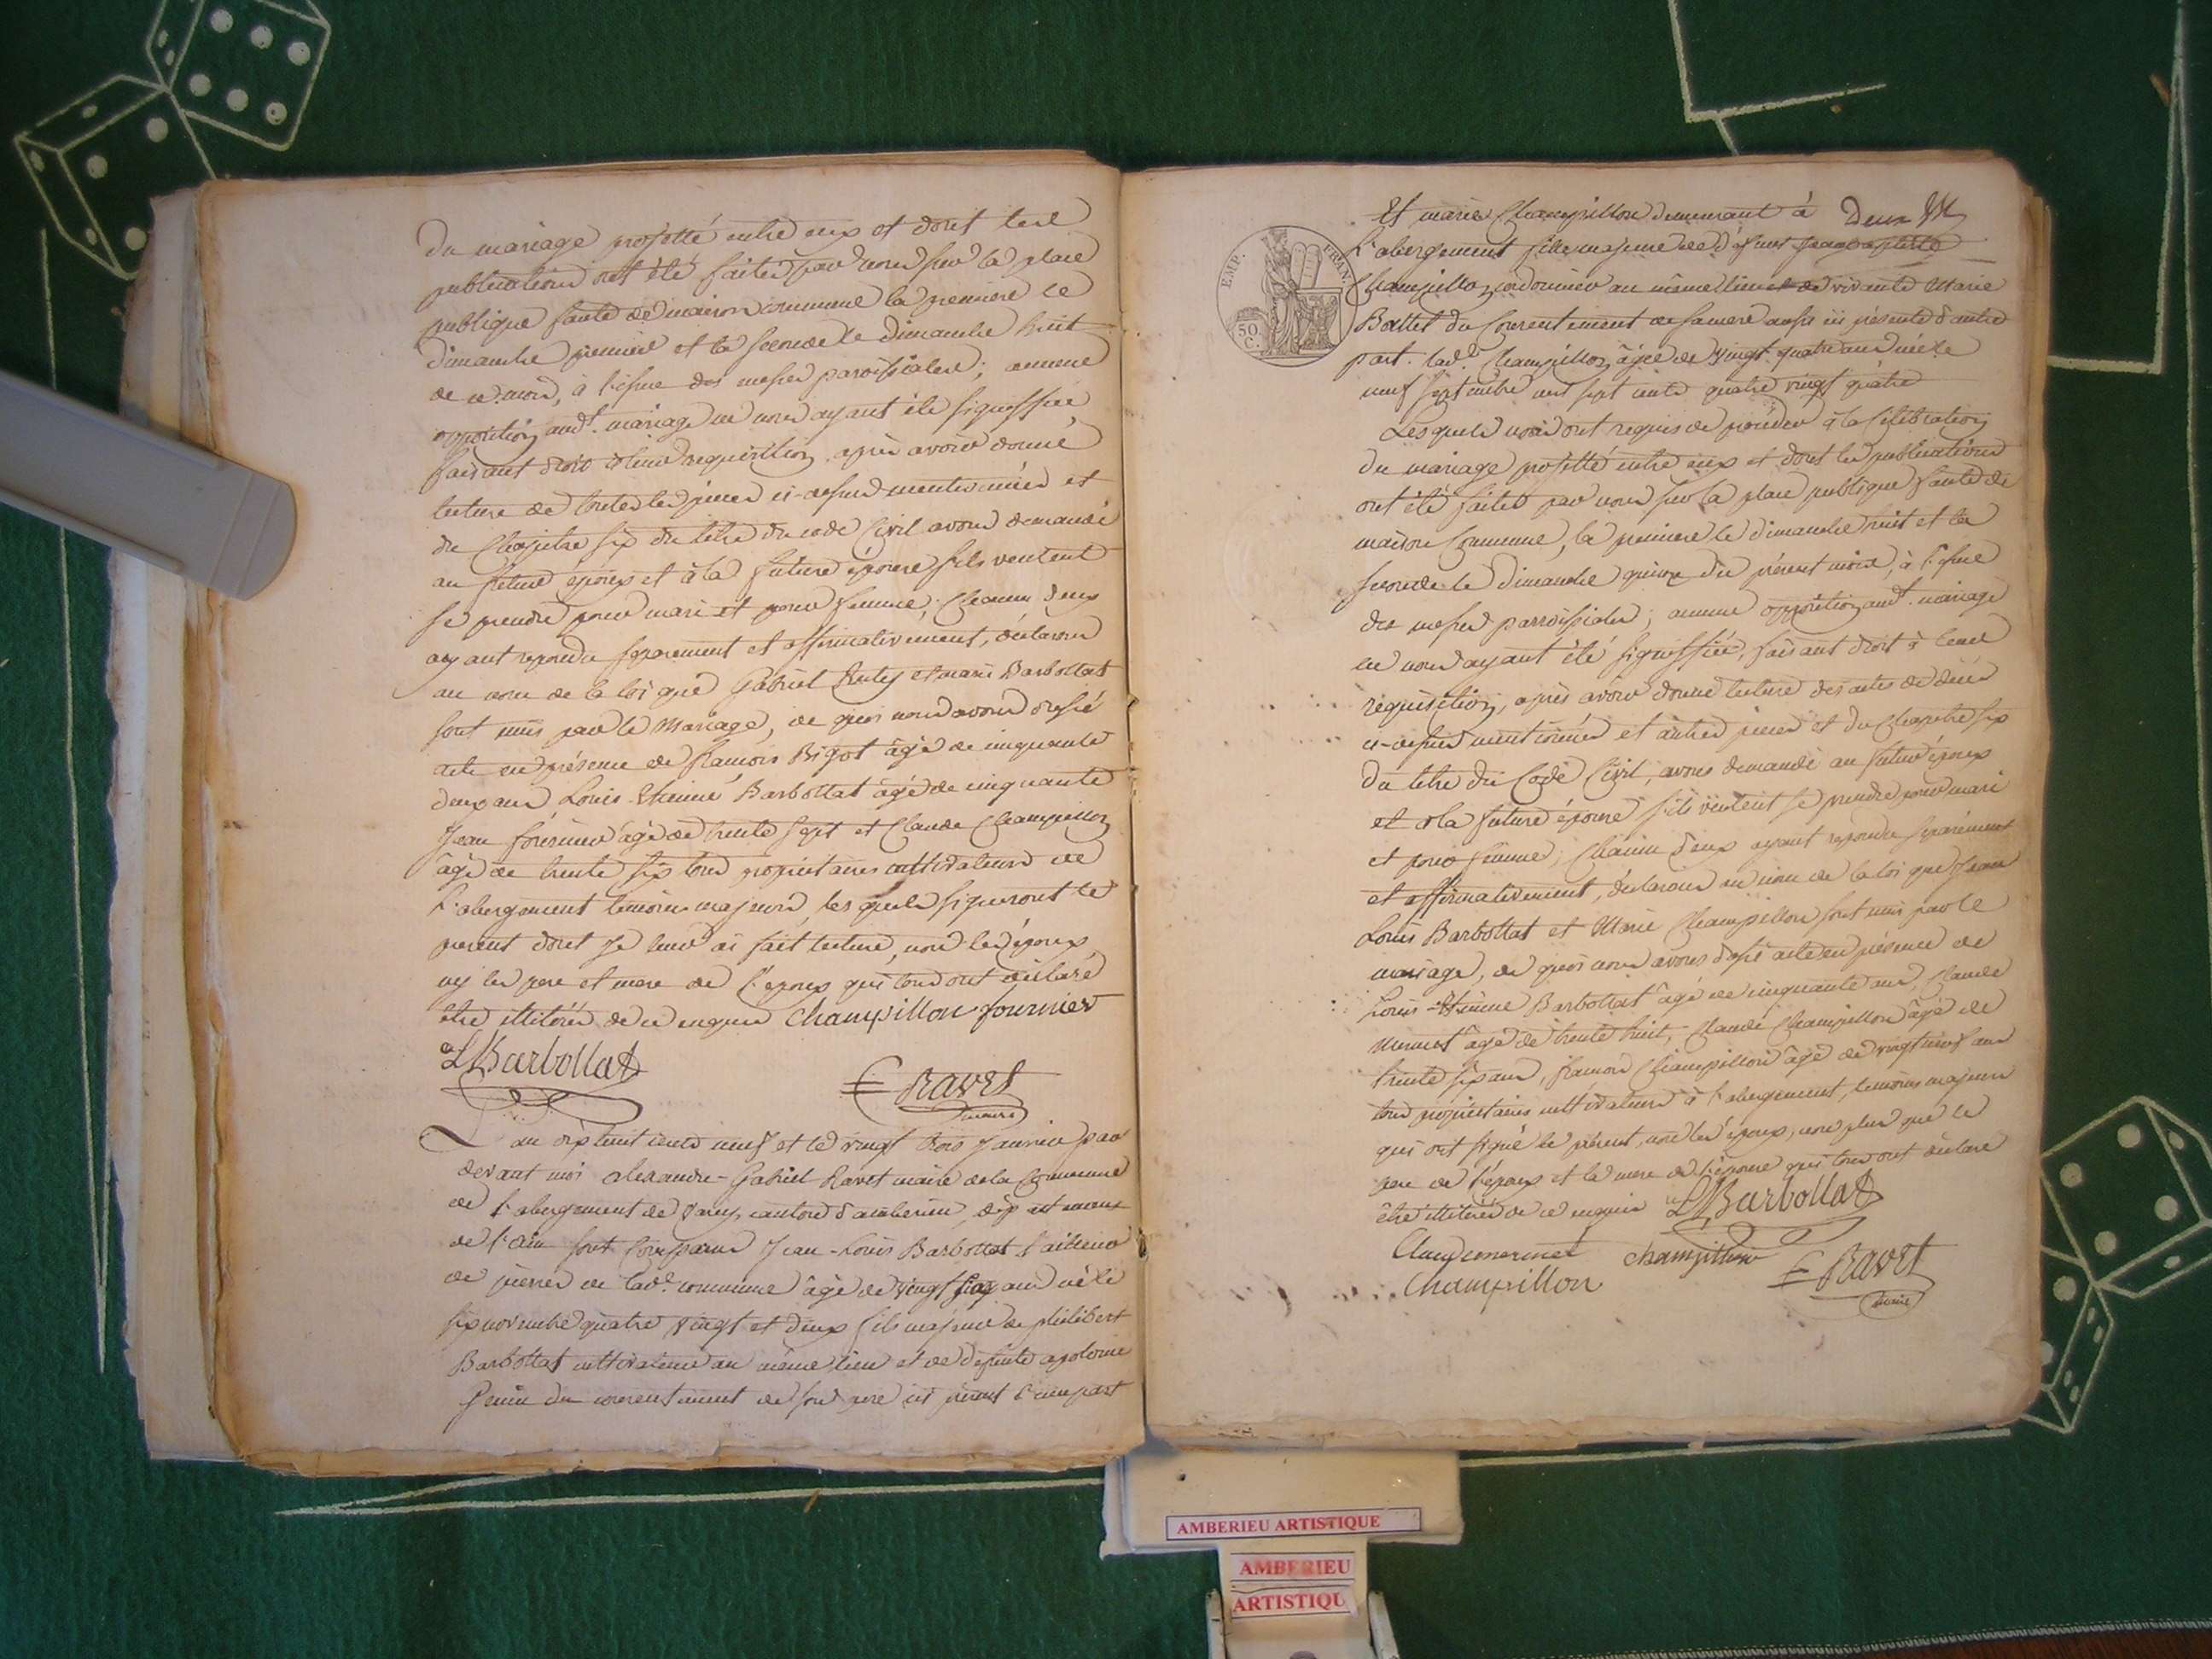 Du mariage projetté entre eux et dont les
publications ont été faites par nous sur la place
publique faute de maison commune la premiere le
dimanche premier et la seconde le dimanche huit
de ce mois, à l'issue des messes paroissiales; aucune
opposition aud.t mariage ne nous ayant été signiffiée
faisant droit à leur requisition après avoir donné
lecture de toutes les pieces ci-dessus mentionnées et
du Chapitre six du titre du code Civil avons demandé
au futur époux et à la future épouse s'ils veulent
se prendre pour mari et pour femme; Chacun d'eux
ayant repondu separement et affirmativement, declarons
au nom de la loi que Gabriel et marie Barbollat
sont unis par le Mariage, de quoi nous avons dressé
acte en présence de francois Bigot âgé de cinquante
deux ans Louis-Etienne Barbollat âgé de cinquante
Jean fournier âgé de trente sept et Claude Champillon
âgé de trente six tous propriétaires cultivateurs de
l'abergement temoins majeurs, lesquels signeront le
present dont je leur ai fait lecture, non les époux
ny les pere et mere de l'epoux qui tous ont déclaré
être illitérés de ce enquis Champillon fournier
LBarbollat
Ravet
maire
L'an dix huit cents neuf et le vingt trois Janvier par
devant moi alexandre-Gabriel Ravet maire de la Commune
de l'abergement de Varey, canton d'amberieu, département
de l'Ain sont Comparus Jean-Louis Barbollat tailleur
de pierres de lad.e commune âgé de vingt six ans né le
six novembre quatre vingt et deux fils majeur de philibert
Barbollat cultivateur au même lieu et de defunte apolonie
Genin du consentement de son pere ici présent d'une part
Deux
EMP. FRAN.
50 C.
Et marie Champillon demeurant à
l'abergement fille majeure de défunt
Champillon cordonnier au même lieu et de vivante Marie
Battet du Consentement de sa mere aussi ici présente d'autre
part. lad.e Champillon âgée de vingt quatre ans née le
neuf septembre mil sept cents quatre vingt quatre
Lesquels nous ont requis de procéder à la célébration
du mariage projetté entre eux et dont les publications
ont été faites par nous sur la place publique faute de
maison Commune, la premiere le dimanche huit et la
seconde le Dimanche quinze du présent mois, à l'issue
des messes parroissiales; aucune opposition aud.t mariage
ne nous ayant été signiffiée, faisant droit à leur
requisition, après avoir donné lecture des actes de décès
ci-dessus mentionnés et autres pieces et du Chapitre six
du titre du Code Civil, avons demandé au futur époux
et à la future épouse s'ils veulent se prendre pour mari
et pour femme; Chacun d'eux ayant repondu separément
et affirmativement, declarons au nom de la loi que Jean
Louis Barbollat et Marie Champillon sont unis par le
mariage, de quoi nous avons dressé acte en présence de
Louis-Etienne Barbollat âgé de cinquante ans, Claude
Mermet âgé de trente huit, Claude Champillon âgé de
trente six ans, francois Champillon âgé de vingt neuf ans
tous propriétaires cultivateurs à l'abergement, temoins majeurs
qui ont signé le présent, non les époux, non plus que le
pere de l'époux et la mere de l'épouse qui tous ont declaré
être illitérés de ce enquis LBarbollat
Claudemermet champillon Ravet
Champillon maire
AMBERIEU ARTISTIQUE
AMBERIEU
ARTISTIQU